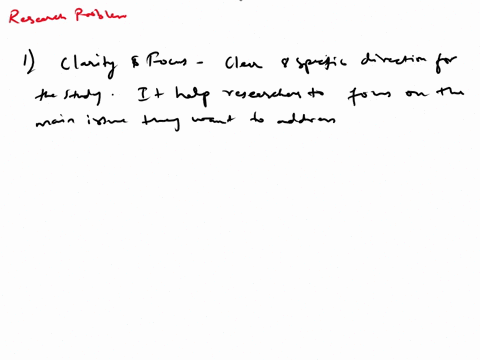 Research Problem
1) Clarity & Focus - Clear & specific direction for
the study. It help researchers to focus on the
main issue they want to address